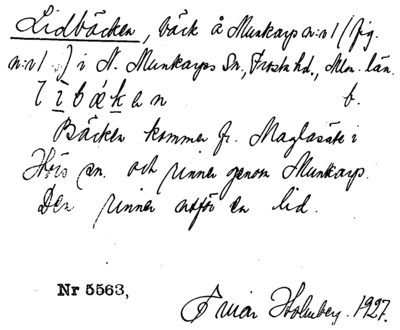 Lidbäcken, bäck å Munkarp n:r 1 (fig.
n:r 1 ) i N. Munkarps Sn., Frosta hd., Mlm. län.
lìbákan f.
Bäcken kommer fr. Maglasäte i
Hörs sn. och rinner genom Munkarp.
Den rinner utför en lid.
Nr 5563,
Ingvar Holmberg. 1927.